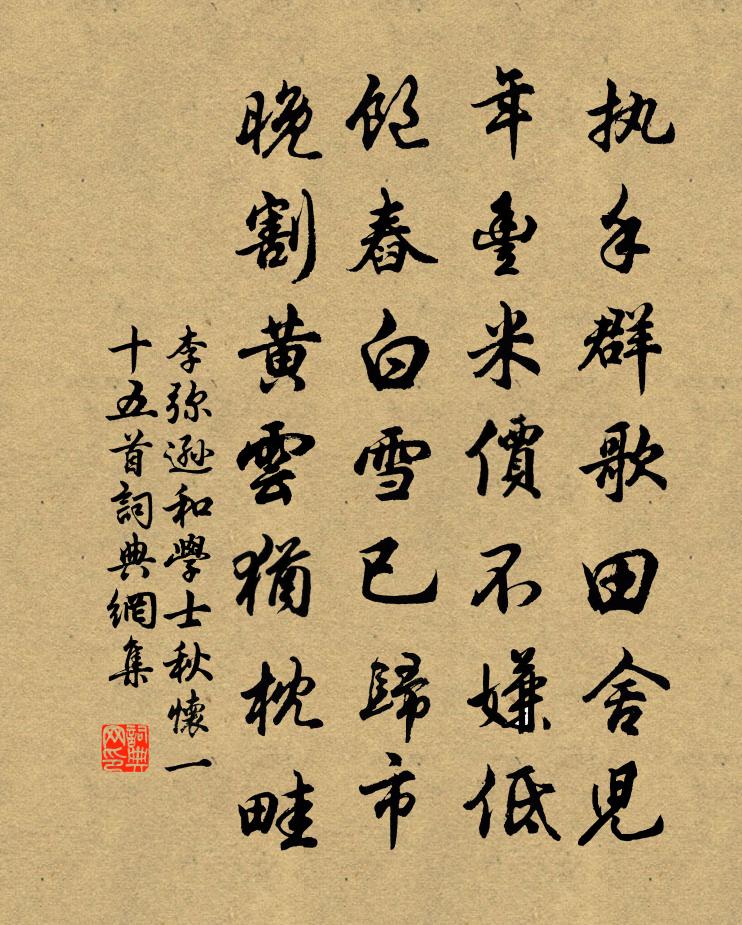 执手群歌田舍児
年豐米價不嫌低
飽舂白雪已歸市
晚割黃雲猶枕畦
李弥遜和學士秋懷一
十五首詞典網集
詞典網印